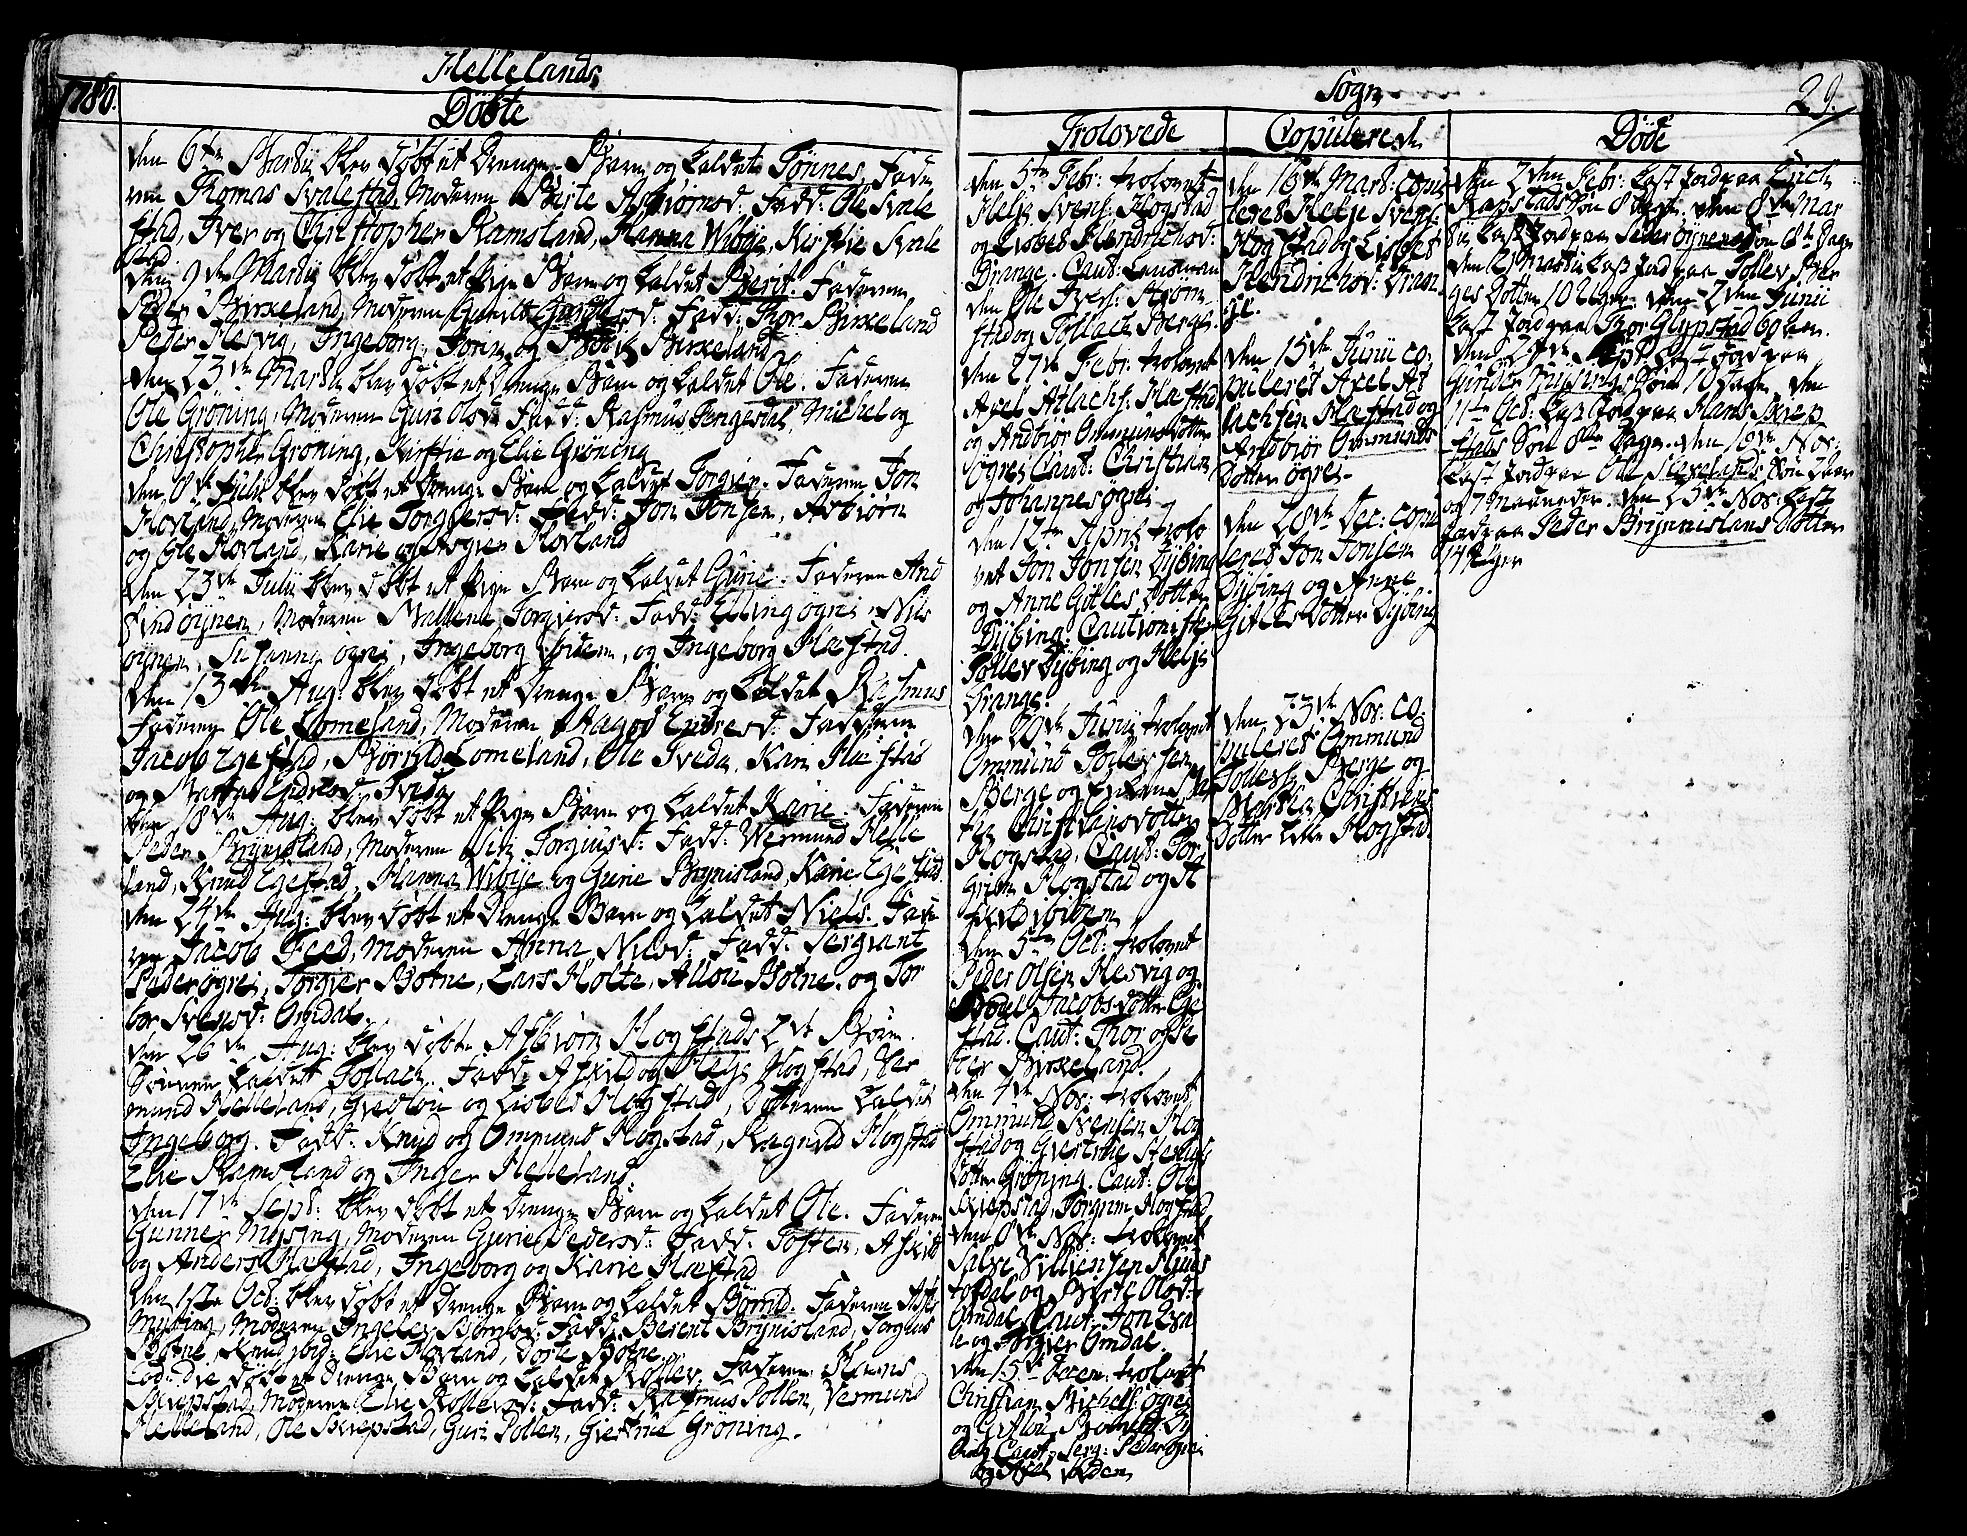 Hellelands
1780.
Döbte
den 6te Martii blev döbt et Drenge Barn og kaldet Tönnes. Fade
ren Thomas Svalestad, Moderen Berte Asbiörnsd: Fadd: Ole Svale
stad, Iver og Christopher Ramsland, Hanna Wibye, Kirstie Svale
stad.
den 9de Martii blev döbt et Pige Barn og kaldet Berit. Faderen
Peder Birkeland, Moderen Fadd: Thor Birkeland
Peder Hesvig, Ingeborg, og Birkeland
den 23de Martii blev döbt et Drenge Barn og kaldet Ole. Faderen
Ole Gröning, Moderen Guri Olsd: Fadd: Rasmus Tengesdal, Michel og
Christopher Gröning, Kirstie og Elie Gröning
den 8de Julii blev döbt et Drenge Barn og kaldet Torgier. Faderen Jon
Hovland, Moderen Elie Torgiersd: Fadd: Jon Jonsen, Asbiörn
og Ole Hovland, Karie og Asgier Hovland
den 23de Julii blev döbt et Pige Barn og kaldet Gurie. Faderen And
öynen, Moderen Mallene Torgiersd: Fadd: Elling ögrei, Nils
öynen, Susanna ögrei, Ingeborg öynen, og Ingeborg Hæstad.
den 13de Aug: blev döbt et Drenge Barn og kaldet Rasmus
Faderen Ole Lomeland, Moderen Aagod Endresd: Fadderne
Jacob Egestad, Lomeland, Ole Tveda, Kari Hæstad
og Marta Endresd: Tveda
den 18de Aug: blev döbt et Pige Barn og kaldet Karie. Faderen
Peder Brynisland, Moderen Siri Torgiusd: Fadd: Wermund Helle
land, Knud Egestad, Hanna Wibye og Gurie Brynisland, Karie Egestad.
den 24de Aug: blev döbt et Drenge Barn og kaldet Niels. Fade
ren Jacob Feed, Moderen Anna Nilsd: Fadd: Sergiant
Peder ögrei, Torgier Botne, Lars Holte, Allou Botne, og Tor
bor Svensd: Omdal.
den 26de Aug: blev döbte Asbiörn Hogstads 2de Börn.
Sönnen kaldet Tollach. Fadd: Askild og Helje Hogstad, Ver
mund Helleland, og Lisbet Hogstad, Dotteren kaldet
Ingeborg. Fadd: Knud og Ommund Hogstad, Ragnild Hogstad
Elie Ramsland og Inger Helleland.
den 17de Sept: blev döbt et Drenge Barn og kaldet Ole. Faderen
Gunner Mysing, Moderen Gurie Pedersd: Fadd: Tosten, Askild
og Anders Hæstad, Ingeborg og Karie Hæstad
den 1ste Oct: blev döbt et Drenge Barn og kaldet Börild. Faderen
Mysing, Moderen Ingelev Fadd: Berent Brynisland, Torgius
Botne, Knud ibid: Elie Hovland, Dorte Botne.
Eod: die döbt et Drenge Barn og kaldet Rollev. Faderen Hans
Skiepstad, Moderen Elie Rollevsd: Fadd: Rasmus Pollen, Vermund
Helleland, Ole Skiepstad, Guri Pollen, Giertrue Gröning.
Sogn
29.
Trolovede
den 5te Febr: trolovet
Helje Svens: Hogstad
og Lisbet Hendrichsd:
Drange. Caut: Lensman
den Ole Ivers: Aarre
stad og Tollach Berge.
den 27de Febr: trolovet
Axel Atlachs: Hæstad
og Andbiör Ommunds Dotter
ögrei, Caut: Christian
og Johannes ögrei
den 12te April trolo
vet Jon Jonsen Dybing
og Anne Gitles Dotter
Dybing. Cautionister
Tollev Dybing og Helje
Drange.
den 20de Junii trolovet
Ommund Tollevsen
Berge og Mar
tha Christiansdotter
Hogstad, Caut: Tor
Hogstad og
ibidem
den 5te Oct: trolovet
Peder Olsen Hesvig og
Jacobs Dotter Ege
stad. Caut: Thor og Pe
der Birkeland.
den 4de Nov: trolovet
Ommund Svensen Hog
stad og Giertrue
Dotter Gröning. Caut: Ole
Skiepstad, Torgrim Hogstad
den 8de Nov: trolovet
Salve Villiemsen
og Berte Olsd:
Omdal, Caut: Jon
og Torgier Omdal.
den 15de Decem: trolovet
Christian Michels: ögrei
og Allou
Caut: Serg: Peder ögrei
og Axel
Copulerede
den 16de Mart: copu
leret Helje Svens:
Hogstad og Lisbet
Hendrichsd: Dran
ge.
den 15de Junii co
puleret Axel At
lachsen Hæstad og
Andbiör Ommunds
Dotter ögrei.
den 28de Dec: copu
leret Jon Jonsen
Dybing og Anne
Gitles Dotter Dybing
den 23de Nov: co
puleret Ommund
Tollevs: Berge og
Martha Christians
Dotter Hogstad.
Döde
den 2den Febr: kast Jord paa Erich
Sön den 8de Mar
tii kast Jord paa Peder öynens Sön 8te Dage
den 21 Martii kast Jord paa Tollev Ber
ges Dotter 10 Uger. den 2den Junii
kast Jord paa Thor Glypstad 60 Aar.
den 24de Sept: kast Jord paa
Gunder Mysings Sön 10 Dage, den
11te Oct: kast Jord paa Hans Skiep
stads Sön 8te Dage. den 10de Nov:
kast Jord paa Ole Sön 2 Aar
og 7 Maaneder. den 23de Nov: kast
Jord paa Peder Brynnislans Dotter
14 Uger